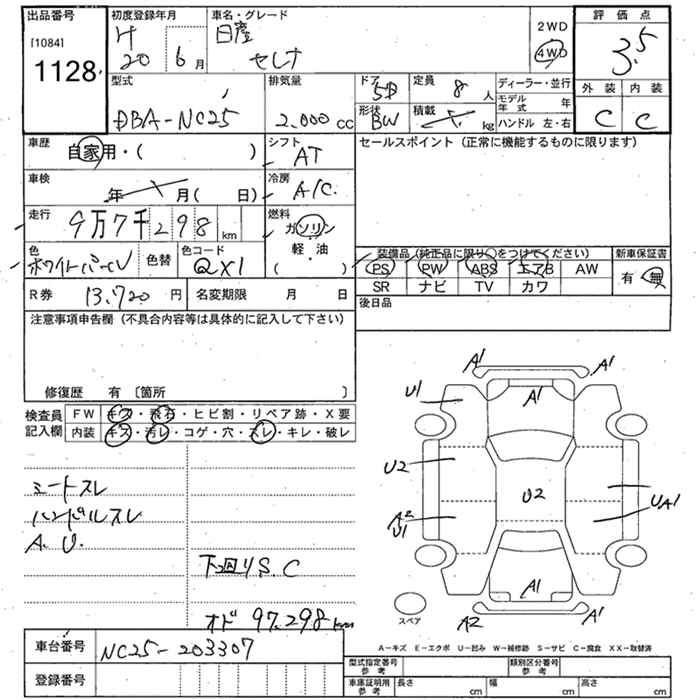 出品番号 初度登録年月 車名・グレード 2WD 評価点
[1084] H 日産 4WD 3.5
1128 20 6月 セレナ
型式 排気量 ドア 5D 定員 8人 ディーラー・並行 外装 内装
DBA-NC25 2,000cc 形状 BW 積載 kg モデル年式 年 C C
ハンドル 左・右
車歴 自家用・( ) シフト AT セールスポイント (正常に機能するものに限ります)
車検 年 月( 日) 冷房 A/C
走行 9万7千298km 燃料 ガソリン
軽・油
( )
色 ホワイトパール 色替 色コード QX1
装備品 (純正品に限り○をつけてください) 新車保証書
PS PW ABS エアB AW 有 無
SR ナビ TV カワ
R券 13,720円 名変期限 月 日 後日品
注意事項申告欄 (不具合内容等は具体的に記入して下さい)
修復歴 有 〔箇所 〕
検査員 FW キズ・飛石・ヒビ割・リペア跡・X要
記入欄 内装 キズ・汚レ・コゲ・穴・スレ・キレ・破レ
シートスレ
ハンドルスレ
A.U.
下廻りS.C
オド 97.298km
A1 A1
A1
U1
U2
U2
A2
U1
UA1
A1
A2 A1
スペア
A-キズ E-エクボ U-凹み W-補修跡 S-サビ C-腐食 XX-取替済
車台番号 NC25-203307
登録番号
型式指定番号 参考 類別区分番号 参考
車庫証明用 参考 長さ cm 幅 cm 高さ cm